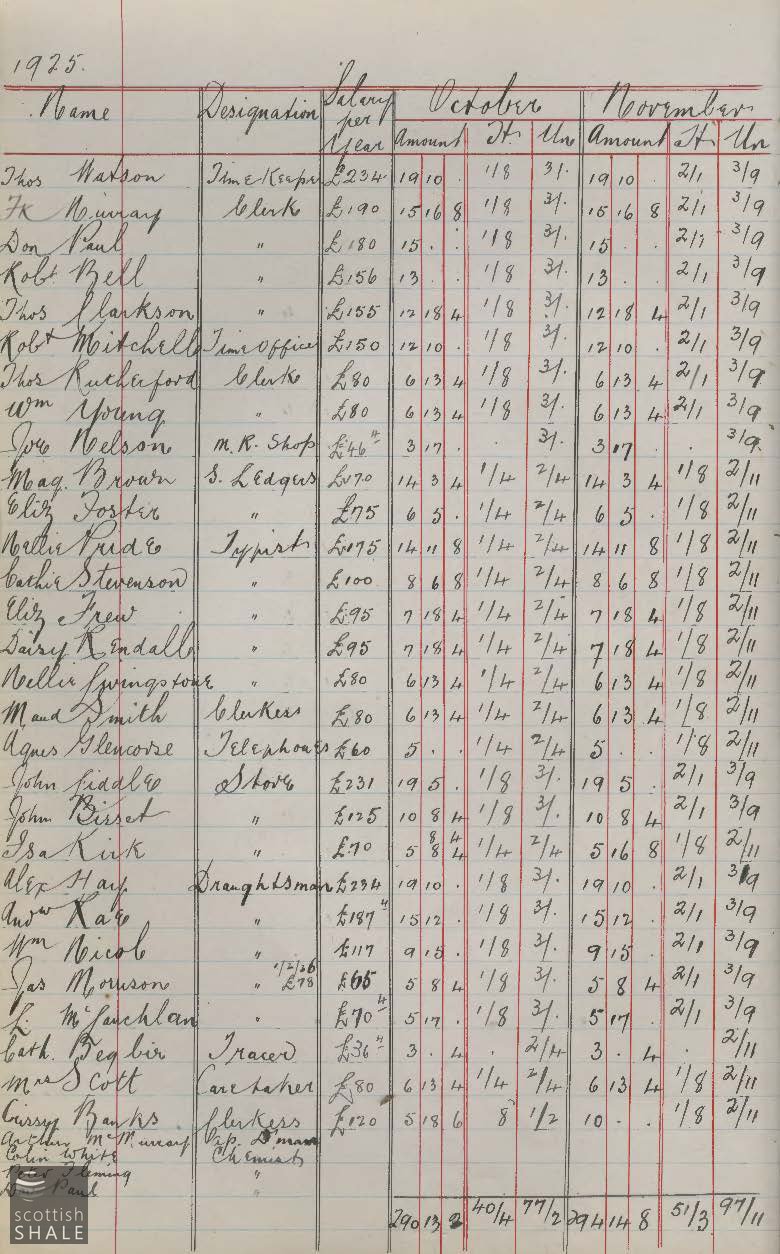 1925.
Name Designation Salary per Year October November
Amount H. Un Amount H. Un
Thos Watson Time Keeper £234 19 10 . 1/8 3/. 19 10 . 2/1 3/9
Fk Murray Clerk £190 15 16 8 1/8 3/. 15 16 8 2/1 3/9
Don Paul " £180 15 . . 1/8 3/. 15 . . 2/1 3/9
Robt Bell " £156 13 . . 1/8 3/. 13 . . 2/1 3/9
Thos Clarkson " £155 12 18 4 1/8 3/. 12 18 4 2/1 3/9
Robt Mitchell Time Office £150 12 10 . 1/8 3/. 12 10 . 2/1 3/9
Thos Rutherford Clerk £80 6 13 4 1/8 3/. 6 13 4 2/1 3/9
Wm Young " £80 6 13 4 1/8 3/. 6 13 4 2/1 3/9
Joe Nelson M.R. Shop £46 4 3 17 . . 3/. 3 17 . . 3/9
Mag. Brown S. Ledgers £170 14 3 4 1/4 2/4 14 3 4 1/8 2/11
Eliz Foster " £75 6 5 . 1/4 2/4 6 5 . 1/8 2/11
Nellie Pride Typist £175 14 11 8 1/4 2/4 14 11 8 1/8 2/11
Cathie Stevenson " £100 8 6 8 1/4 2/4 8 6 8 1/8 2/11
Eliz Frew " £95 7 18 4 1/4 2/4 7 18 4 1/8 2/11
Daisy Kendall " £95 7 18 4 1/4 2/4 7 18 4 1/8 2/11
Nellie Livingstone " £80 6 13 4 1/4 2/4 6 13 4 1/8 2/11
Maud Smith Clerkess £80 6 13 4 1/4 2/4 6 13 4 1/8 2/11
Agnes Glencorse Telephones £60 5 . . 1/4 2/4 5 . . 1/8 2/11
John Liddle Store £231 19 5 . 1/8 3/. 19 5 . 2/1 3/9
John Bisset " £125 10 8 4 1/8 3/. 10 8 4 2/1 3/9
Isa Kirk " £70 5 8 4 1/4 2/4 5 16 8 1/8 2/11
Alex Hay Draughtsman £234 19 10 . 1/8 3/. 19 10 . 2/1 3/9
Andw Rae " £187 4 15 12 . 1/8 3/. 15 12 . 2/1 3/9
Wm Nicol " £117 9 15 . 1/8 3/. 9 15 . 2/1 3/9
Jas Morrison " 1/2/26 £78 £65 5 8 4 1/8 3/. 5 8 4 2/1 3/9
L. McLauchlan " £70 4 5 17 . 1/8 3/. 5 17 . 2/1 3/9
Cath. Begbie Tracer £36 4 3 . 4 . 2/4 3 . 4 . 2/11
Mrs Scott Caretaker £80 6 13 4 1/4 2/4 6 13 4 1/8 2/11
Cissy Banks Clerkess £120 5 18 6 8 1/2 10 . . 1/8 2/11
Arthur McMurray Ap. D'man
Colin White Chemist
Peter Fleming "
Paul "
290 13 2 40/4 77/2 294 14 8 51/3 97/11
scottish
SHALE